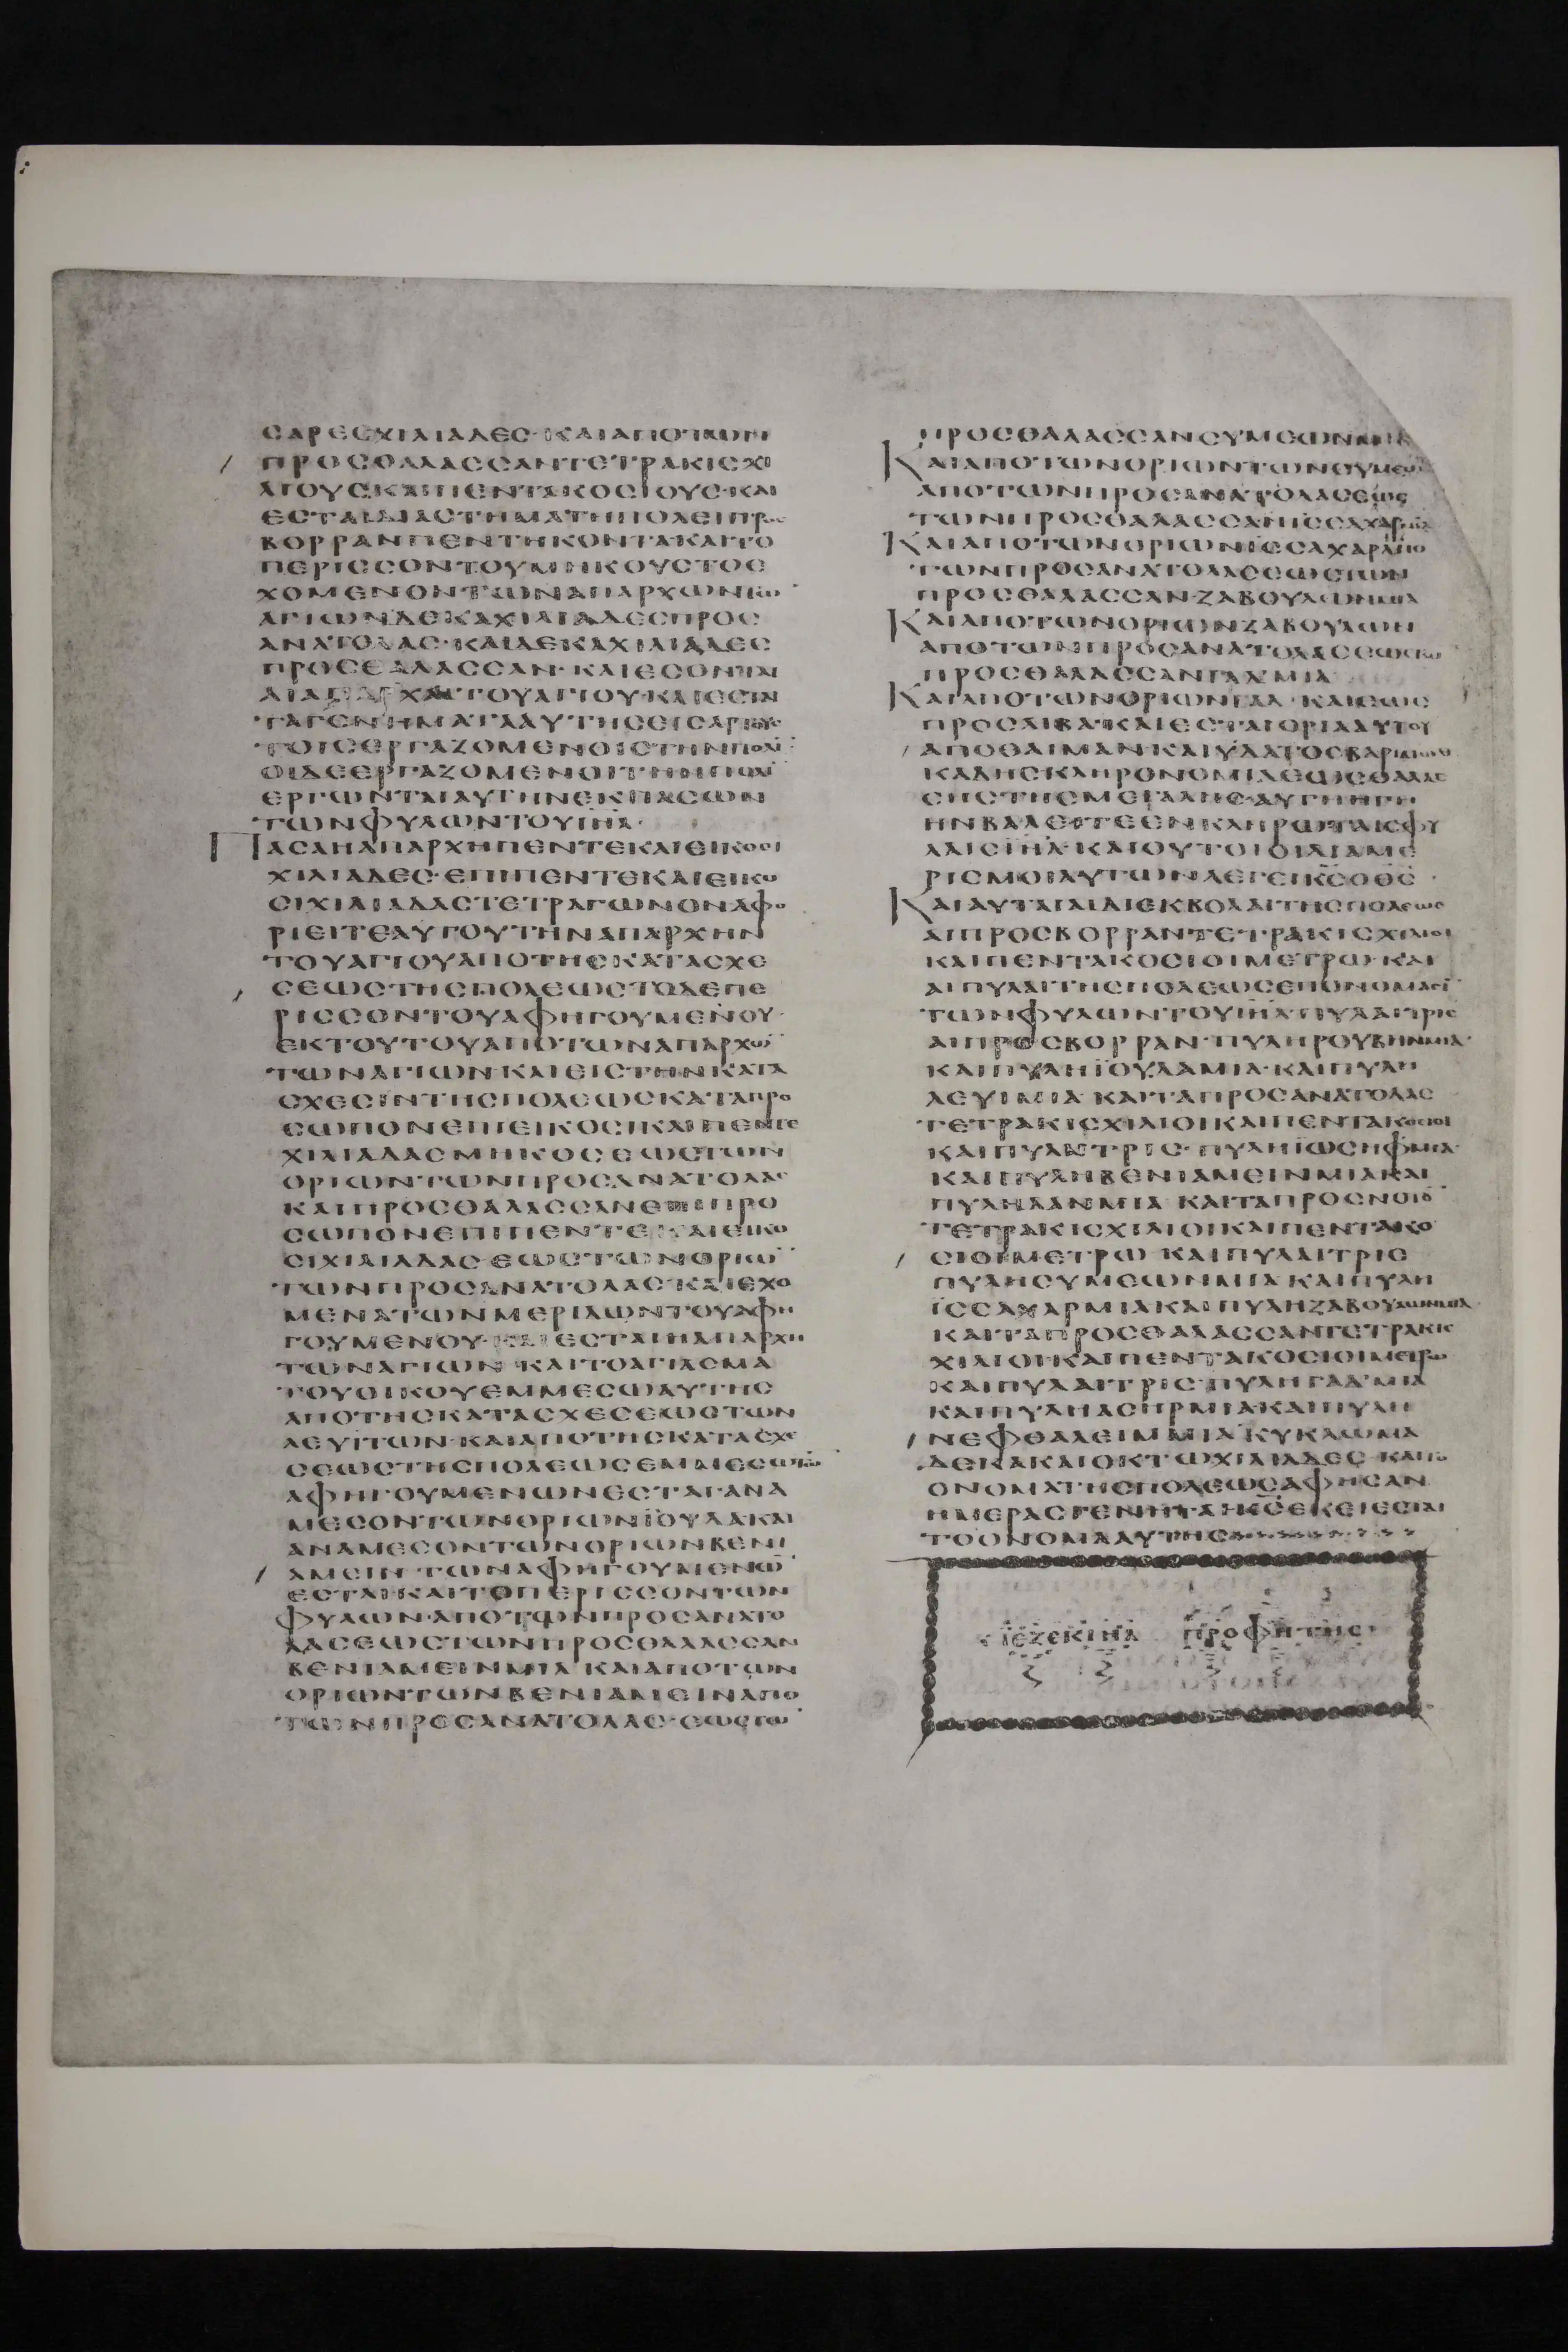 CΑΡΕCΧΙΛΙΑΔΕC·ΚΑΙΑΠΟΤΩΝ
ΠΡΟCΘΑΛΑCCΑΝΤΕΤΡΑΚΙCΧΙ
ΛΙΟΥCΚΑΙΠΕΝΤΑΚΟCΙΟΥC·ΚΑΙ
ΕCΤΑΙΔΙΑCΤΗΜΑΤΗΠΟΛΕΙΠΡΟC
ΒΟΡΡΑΝΠΕΝΤΗΚΟΝΤΑΚΑΙΤΟ
ΠΕΡΙCCΟΝΤΟΥΜΗΚΟΥCΤΟΕ
ΧΟΜΕΝΟΝΤΩΝΑΠΑΡΧΩΝΤΩ̅
ΑΓΙΩΝΔΕΚΑΧΙΛΙΑΔΕCΠΡΟC
ΑΝΑΤΟΛΑC·ΚΑΙΔΕΚΑΧΙΛΙΑΔΕC
ΠΡΟCΘΑΛΑCCΑΝ·ΚΑΙΕCΟΝΤΑΙ
ΑΙΑΠΑΡΧΑΙΤΟΥΑΓΙΟΥ·ΚΑΙΕCΤΑΙ
ΤΑΓΕΝΗΜΑΤΑΑΥΤΗCΕΙCΑΡΤΟΥC
ΤΟΙCΕΡΓΑΖΟΜΕΝΟΙCΤΗΝΠΟΛΙ̅
ΟΙΔΕΕΡΓΑΖΟΜΕΝΟΙΤΗΝΠΟΛΙ̅
ΕΡΓΩΝΤΑΙΑΥΤΗΝΕΚΠΑCΩΝ
ΤΩΝΦΥΛΩΝΤΟΥΙΗΛ·
ΠΑCΑΗΑΠΑΡΧΗΠΕΝΤΕΚΑΙΕΙΚΟCΙ
ΧΙΛΙΑΔΕC·ΕΠΙΠΕΝΤΕΚΑΙΕΙΚΟ
CΙΧΙΛΙΑΔΑCΤΕΤΡΑΓΩΝΟΝΑΦΟ
ΡΙΕΙΤΕΑΥΤΟΥΤΗΝΑΠΑΡΧΗΝ
ΤΟΥΑΓΙΟΥΑΠΟΤΗCΚΑΤΑCΧΕ
CΕΩCΤΗCΠΟΛΕΩCΤΟΔΕΠΕ
ΡΙCCΟΝΤΟΥΑΦΗΓΟΥΜΕΝΟΥ
ΕΚΤΟΥΤΟΥΑΠΟΤΩΝΑΠΑΡΧΩ̅
ΤΩΝΑΓΙΩΝ·ΚΑΙΕΙCΤΗΝΚΑΤΑ
CΧΕCΙΝΤΗCΠΟΛΕΩCΚΑΤΑΠΡΟ
CΩΠΟΝΕΠΙΕΙΚΟCΙΚΑΙΠΕΝΤΕ
ΧΙΛΙΑΔΑCΜΗΚΟCΕΩCΤΩΝ
ΟΡΙΩΝΤΩΝΠΡΟCΑΝΑΤΟΛΑC
ΚΑΙΠΡΟCΘΑΛΑCCΑΝΕΠΙΠΡΟ
CΩΠΟΝΕΠΙΠΕΝΤΕΚΑΙΕΙΚΟ
CΙΧΙΛΙΑΔΑC·ΕΩCΤΩΝΟΡΙΩ̅
ΤΩΝΠΡΟCΑΝΑΤΟΛΑC·ΚΑΙΕΧΟ
ΜΕΝΑΤΩΝΜΕΡΙΔΩΝΤΟΥΑΦΗ
ΓΟΥΜΕΝΟΥ·ΚΑΙΕCΤΑΙΗΑΠΑΡΧΗ
ΤΩΝΑΓΙΩΝ·ΚΑΙΤΟΑΓΙΑCΜΑ
ΤΟΥΟΙΚΟΥΕΜΜΕCΩΑΥΤΗC
ΑΠΟΤΗCΚΑΤΑCΧΕCΕΩCΤΩΝ
ΛΕΥΙΤΩΝ·ΚΑΙΑΠΟΤΗCΚΑΤΑCΧΕ
CΕΩCΤΗCΠΟΛΕΩCΕΜΜΕCΩΤΩ̅
ΑΦΗΓΟΥΜΕΝΩΝΕCΤΑΙ·ΑΝΑ
ΜΕCΟΝΤΩΝΟΡΙΩΝΪΟΥΔΑΚΑΙ
ΑΝΑΜΕCΟΝΤΩΝΟΡΙΩΝΒΕΝΙ
ΑΜΕΙΝ·ΤΩΝΑΦΗΓΟΥΜΕΝΩ̅
ΕCΤΑΙ·ΚΑΙΤΟΠΕΡΙCCΟΝΤΩΝ
ΦΥΛΩΝ·ΑΠΟΤΩΝΠΡΟCΑΝΑΤΟ
ΛΑCΕΩCΤΩΝΠΡΟCΘΑΛΑCCΑΝ
ΒΕΝΙΑΜΕΙΝΜΙΑ·ΚΑΙΑΠΟΤΩΝ
ΟΡΙΩΝΤΩΝΒΕΝΙΑΜΕΙΝΑΠΟ
ΤΩΝΠΡΟCΑΝΑΤΟΛΑC·ΕΩCΤΩ̅
ΠΡΟCΘΑΛΑCCΑΝCΥΜΕΩΝΜΙΑ
ΚΑΙΑΠΟΤΩΝΟΡΙΩΝΤΩΝCΥΜΕΩ̅
ΑΠΟΤΩΝΠΡΟCΑΝΑΤΟΛΑCΕΩC
ΤΩΝΠΡΟCΘΑΛΑCCΑΝΙCCΑΧΑΡΜΙΑ
ΚΑΙΑΠΟΤΩΝΟΡΙΩΝΙCCΑΧΑΡΑΠΟ
ΤΩΝΠΡΟCΑΝΑΤΟΛΑCΕΩCΤΩΝ
ΠΡΟCΘΑΛΑCCΑΝ·ΖΑΒΟΥΛΩΝΜΙΑ
ΚΑΙΑΠΟΤΩΝΟΡΙΩΝΖΑΒΟΥΛΩΝ
ΑΠΟΤΩΝΠΡΟCΑΝΑΤΟΛΑCΕΩCΤΩ̅
ΠΡΟCΘΑΛΑCCΑΝΓΑΔΜΙΑ
ΚΑΙΑΠΟΤΩΝΟΡΙΩΝΓΑΔ·ΚΑΙΕΩC
ΠΡΟCΛΙΒΑ·ΚΑΙΕCΤΑΙΟΡΙΑΑΥΤΟΥ
ΑΠΟΘΑΙΜΑΝ·ΚΑΙΥΔΑΤΟCΒΑΡΙΜΩΘ
ΚΑΔΗCΚΛΗΡΟΝΟΜΙΑCΕΩCΘΑΛΑC
CΗCΤΗCΜΕΓΑΛΗC·ΑΥΤΗΗΓΗ
ΗΝΒΑΛΕΙΤΕΕΝΚΛΗΡΩΤΑΙCΦΥ
ΛΑΙCΙΗΛ·ΚΑΙΟΥΤΟΙΟΙΔΙΑΜΕ
ΡΙCΜΟΙΑΥΤΩΝΛΕΓΕΙΚCΟΘC
ΚΑΙΑΥΤΑΙΑΙΔΙΕΚΒΟΛΑΙΤΗCΠΟΛΕΩC
ΑΙΠΡΟCΒΟΡΡΑΝΤΕΤΡΑΚΙCΧΙΛΙΟΙ
ΚΑΙΠΕΝΤΑΚΟCΙΟΙΜΕΤΡΩ·ΚΑΙ
ΑΙΠΥΛΑΙΤΗCΠΟΛΕΩCΕΠΟΝΟΜΑCΙ̅
ΤΩΝΦΥΛΩΝΤΟΥΙΗΛ·ΠΥΛΑΙΤΡΙC
ΑΙΠΡΟCΒΟΡΡΑΝ·ΠΥΛΗΡΟΥΒΗΝΜΙΑ·
ΚΑΙΠΥΛΗΪΟΥΔΑΜΙΑ·ΚΑΙΠΥΛΗ
ΛΕΥΙΜΙΑ·ΚΑΙΤΑΠΡΟCΑΝΑΤΟΛΑC
ΤΕΤΡΑΚΙCΧΙΛΙΟΙΚΑΙΠΕΝΤΑΚΟCΙΟΙ
ΚΑΙΠΥΛΑΙΤΡΙC·ΠΥΛΗΪΩCΗΦΜΙΑ·
ΚΑΙΠΥΛΗΒΕΝΙΑΜΕΙΝΜΙΑΚΑΙ
ΠΥΛΗΔΑΝΜΙΑ·ΚΑΙΤΑΠΡΟCΝΟΤΟ̅
ΤΕΤΡΑΚΙCΧΙΛΙΟΙΚΑΙΠΕΝΤΑΚΟ
CΙΟΙΜΕΤΡΩ·ΚΑΙΠΥΛΑΙΤΡΙC
ΠΥΛΗCΥΜΕΩΝΜΙΑ·ΚΑΙΠΥΛΗ
ΪCCΑΧΑΡΜΙΑΚΑΙΠΥΛΗΖΑΒΟΥΛΩΝΜΙΑ·
ΚΑΙΤΑΠΡΟCΘΑΛΑCCΑΝΤΕΤΡΑΚΙC
ΧΙΛΙΟΙΚΑΙΠΕΝΤΑΚΟCΙΟΙΜΕΤΡΩ
ΚΑΙΠΥΛΑΙΤΡΙC·ΠΥΛΗΓΑΔ·ΜΙΑ
ΚΑΙΠΥΛΗΑCΗΡΜΙΑ·ΚΑΙΠΥΛΗ
ΝΕΦΘΑΛΕΙΜΜΙΑ·ΚΥΚΛΩΜΑ
ΔΕΚΑΚΑΙΟΚΤΩΧΙΛΙΑΔΕC·ΚΑΙΤΟ
ΟΝΟΜΑΤΗCΠΟΛΕΩCΑΦΗCΑΝ
ΗΜΕΡΑCΓΕΝΗΤΑΙΚCΕΚΕΙΕCΤΑΙ
ΤΟΟΝΟΜΑΑΥΤΗC
ΙΕΖΕΚΙΗΛ ΠΡΟΦΗΤΗC